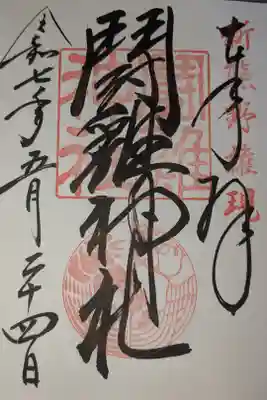 新熊野權現
奉拝
鬪雞神社
鬪雞
神社
令和七年五月二十四日